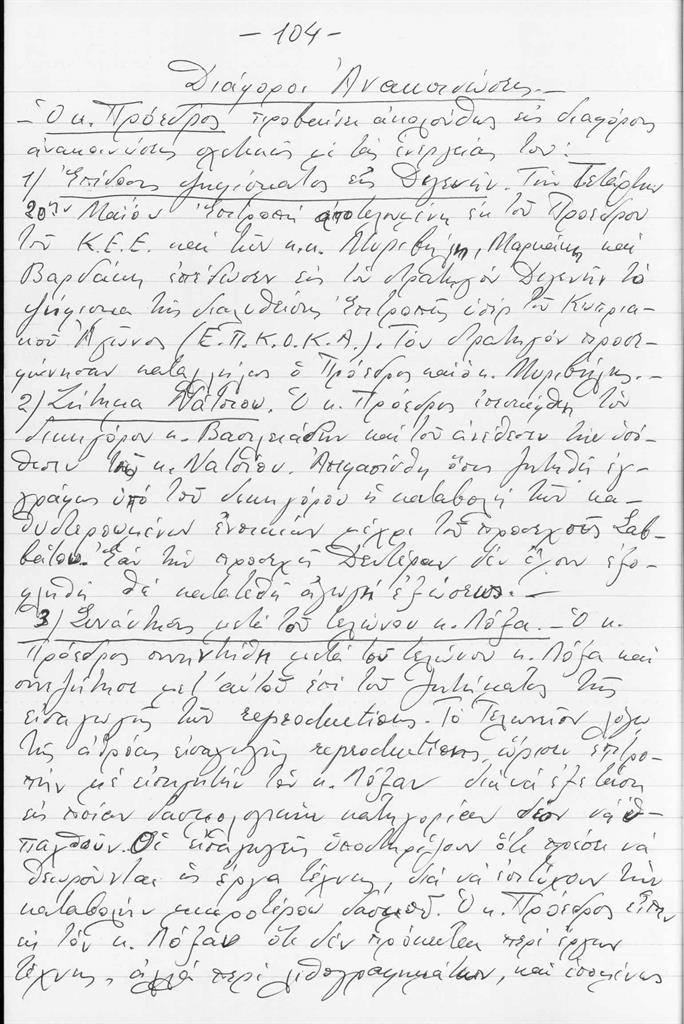 - 104 -
Διάφοροι Ἀνακοινώσεις.-
- Ὁ κ. Πρόεδρος προβαίνει ἀκολούθως εἰς διαφόρους
ἀνακοινώσεις σχετικῶς μέ τάς ἐνεργείας του:-
1) Ἐπίδοσις ψηφίσματος εἰς Διγενῆν. Τήν Τετάρτην
20ήν Μαΐου Ἐπιτροπή ἀποτελουμένη ἐκ τοῦ Προέδρου
τοῦ Κ.Ε.Ε. καί τῶν κ.κ. Μυριβήλη, Μαρκάκη καί
Βαρδάκη ἐπέδωσεν εἰς τόν στρατηγόν Διγενῆν τό
ψήφισμα τῆς διαλυθείσης Ἐπιτροπῆς ὑπέρ τοῦ Κυπρια-
κοῦ Ἀγῶνος (Ε.Π.Κ.Ο.Κ.Α.). Τόν στρατηγόν προσε-
φώνησαν καταλλήλως ὁ Πρόεδρος καί ὁ κ. Μυριβήλης.-
2) Ζήτημα Νάτσιου. Ὁ κ. Πρόεδρος ἐπεσκέφθη τόν
δικηγόρον κ. Βασιλειάδην καί τοῦ ἀνέθεσεν τήν ὑπό-
θεσιν τῆς κ. Νατσίου. Ἀπεφασίσθη ὅπως ζητηθῆ ἐγ-
γράφως ὑπό τοῦ δικηγόρου ἡ καταβολή τῶν κα-
θυστερουμένων ἐνοικίων μέχρι τοῦ προσεχοῦς Σαβ-
βάτου. Ἐάν τήν προσεχῆ Δευτέραν δέν ἔχουν ἐξο-
φληθῆ θά κατατεθῆ ἀγωγή ἐξώσεως.-
3) Συνάντησις μετά τοῦ τελώνου κ. Λόζα.- Ὁ κ.
Πρόεδρος συνηντήθη μετά τοῦ τελώνου κ. Λόζα καί
συνεζήτησε μετ' αὐτοῦ ἐπί τοῦ ζητήματος τῆς
εἰσαγωγῆς τῶν reproductions. Τό Τελωνεῖον λόγω
τῆς ἀθρόας εἰσαγωγῆς reproductions, ὥρισεν ἐπιτρο-
πήν μέ εἰσηγητήν τόν κ. Λόζαν διά νά ἐξετάση
εἰς ποίαν δασμολογικήν κατηγορίαν δέον νά ὑ-
παχθοῦν. Οἱ εἰσαγωγεῖς ὑποστηρίζουν ὅτι πρέπει νά
θεωροῦνται ὡς ἔργα τέχνης, διά νά ἐπιτύχουν τήν
καταβολήν μικροτέρου δασμοῦ. Ὁ κ. Πρόεδρος εἶπεν
εἰς τόν κ. Λόζαν ὅτι δέν πρόκειται περί ἔργων
τέχνης, ἀλλά περί λιθογραφημάτων, καί ἑπομένως